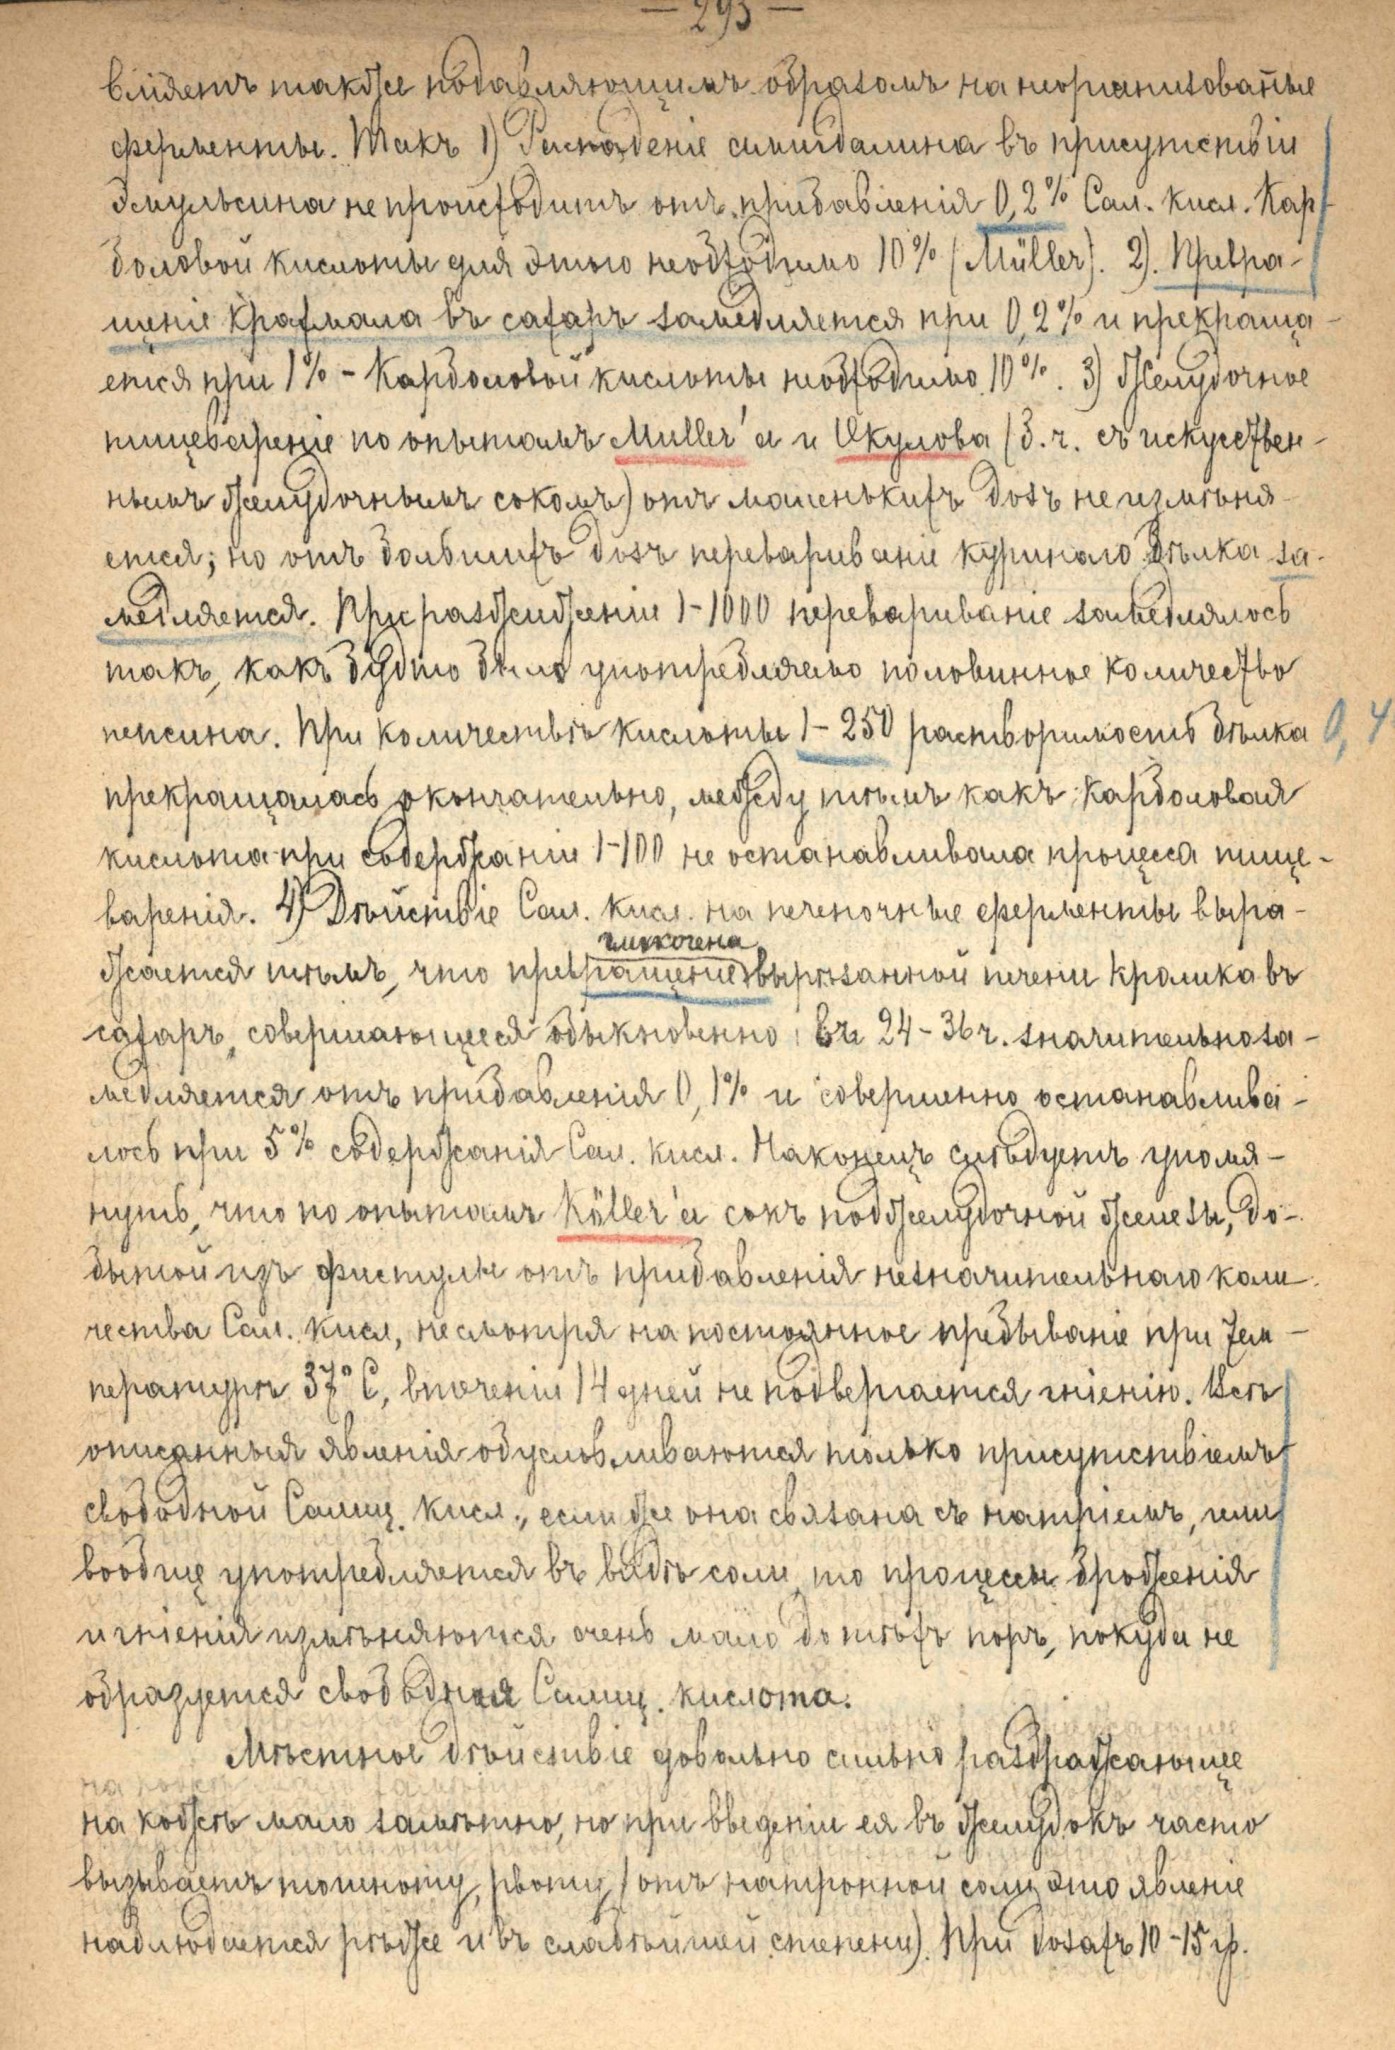 — 293 —
влiяетъ также подавляющимъ образомъ на неорганизованные
ферменты. Такъ 1) Распаденiе амигдалина въ присутствiи
Эмульсина не происходитъ отъ прибавленiя 0,2% Сал. кисл. Кар-
боловой кислоты для этого необходимо 10% (Müller). 2). Превра-
щенiе крахмала въ сахаръ замедляется при 0,2% и прекраща-
ется при 1% - Карболовой кислоты необходимо 10%. 3) Желудочное
пищеваренiе по опытамъ Muller'а и Окулова (З. ч. съ искусствен-
нымъ желудочнымъ сокомъ) отъ маленькихъ дозъ не измѣня-
ется; но отъ большихъ дозъ перевариванiе куринаго бѣлка за-
медляется. При разжиженiи 1-1000 перевариванiе замедлялось
такъ, какъ будто было употребляемо половинное количество
пепсина. При количествѣ кислоты 1-250 растворимость бѣлка 0,4
прекращалась окончательно, между тѣмъ какъ Карболовая
кислота при содержанiи 1-100 не останавливала процесса пище-
варенiя. 4) Дѣйствiе Сал. кисл. на печеночные ферменты выра-
гликогена
жается тѣмъ, что превращенiе вырѣзанной печени кролика въ
сахаръ, совершающееся обыкновенно въ 24-36 ч. значительно за-
медляется отъ прибавленiя 0,1% и совершенно останавлива-
лось при 5% содержанiя Сал. кисл. Наконецъ слѣдуетъ упомя-
нуть, что по опытамъ Köller'а сокъ поджелудочной железы, до-
бытой изъ фистулы отъ прибавленiя незначительнаго коли-
чества Сал. кисл, несмотря на постоянное пребыванiе при тем-
пературѣ 37° C, втеченiи 14 дней не подвергается гнiенiю. Всѣ
описанныя явленiя обусловливаются только присутствiемъ
свободной Салиц. кисл., если же она связана съ натрiемъ, или
вообще употребляется въ видѣ соли, то процессы броженiя
и гнiенiя измѣняются очень мало до тѣхъ поръ, покуда не
образуется свободная Салиц. кислота.
Мѣстное дѣйствiе довольно сильно раздражающее
на кожѣ мало замѣтно, но при введенiи ея въ желудокъ часто
вызываетъ тошноту, рвоту, (отъ натронной соли это явленiе
наблюдается рѣже и въ слабѣйшей степени). При дозахъ 10-15 гр.